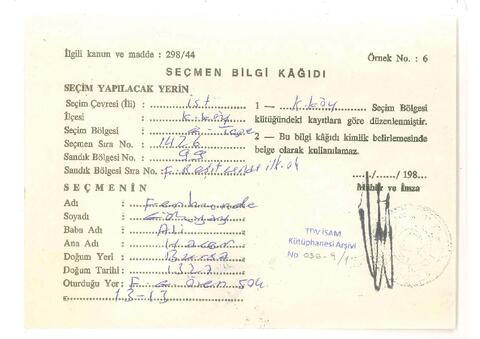 İlgili kanun ve madde : 298/44
Örnek No. : 6
SEÇMEN BİLGİ KÂĞIDI
SEÇİM YAPILACAK YERİN
Seçim Çevresi (İli) : ist
İlçesi : K.köy
Seçim Bölgesi :
Seçmen Sıra No. : 1426
Sandık Bölgesi No. : 99
Sandık Bölgesi Sıra No. :
1 — K.köy Seçim Bölgesi
kütüğündeki kayıtlara göre düzenlenmiştir.
2 — Bu bilgi kâğıdı kimlik belirlemesinde
belge olarak kullanılamaz.
...../...../198...
Mühür ve İmza
SEÇMENİN
Adı :
Soyadı :
Baba Adı : Ali
Ana Adı : Hacer
Doğum Yeri : Bursa
Doğum Tarihi :
Oturduğu Yer :
13-13
TDV İSAM
Kütüphanesi Arşivi
No